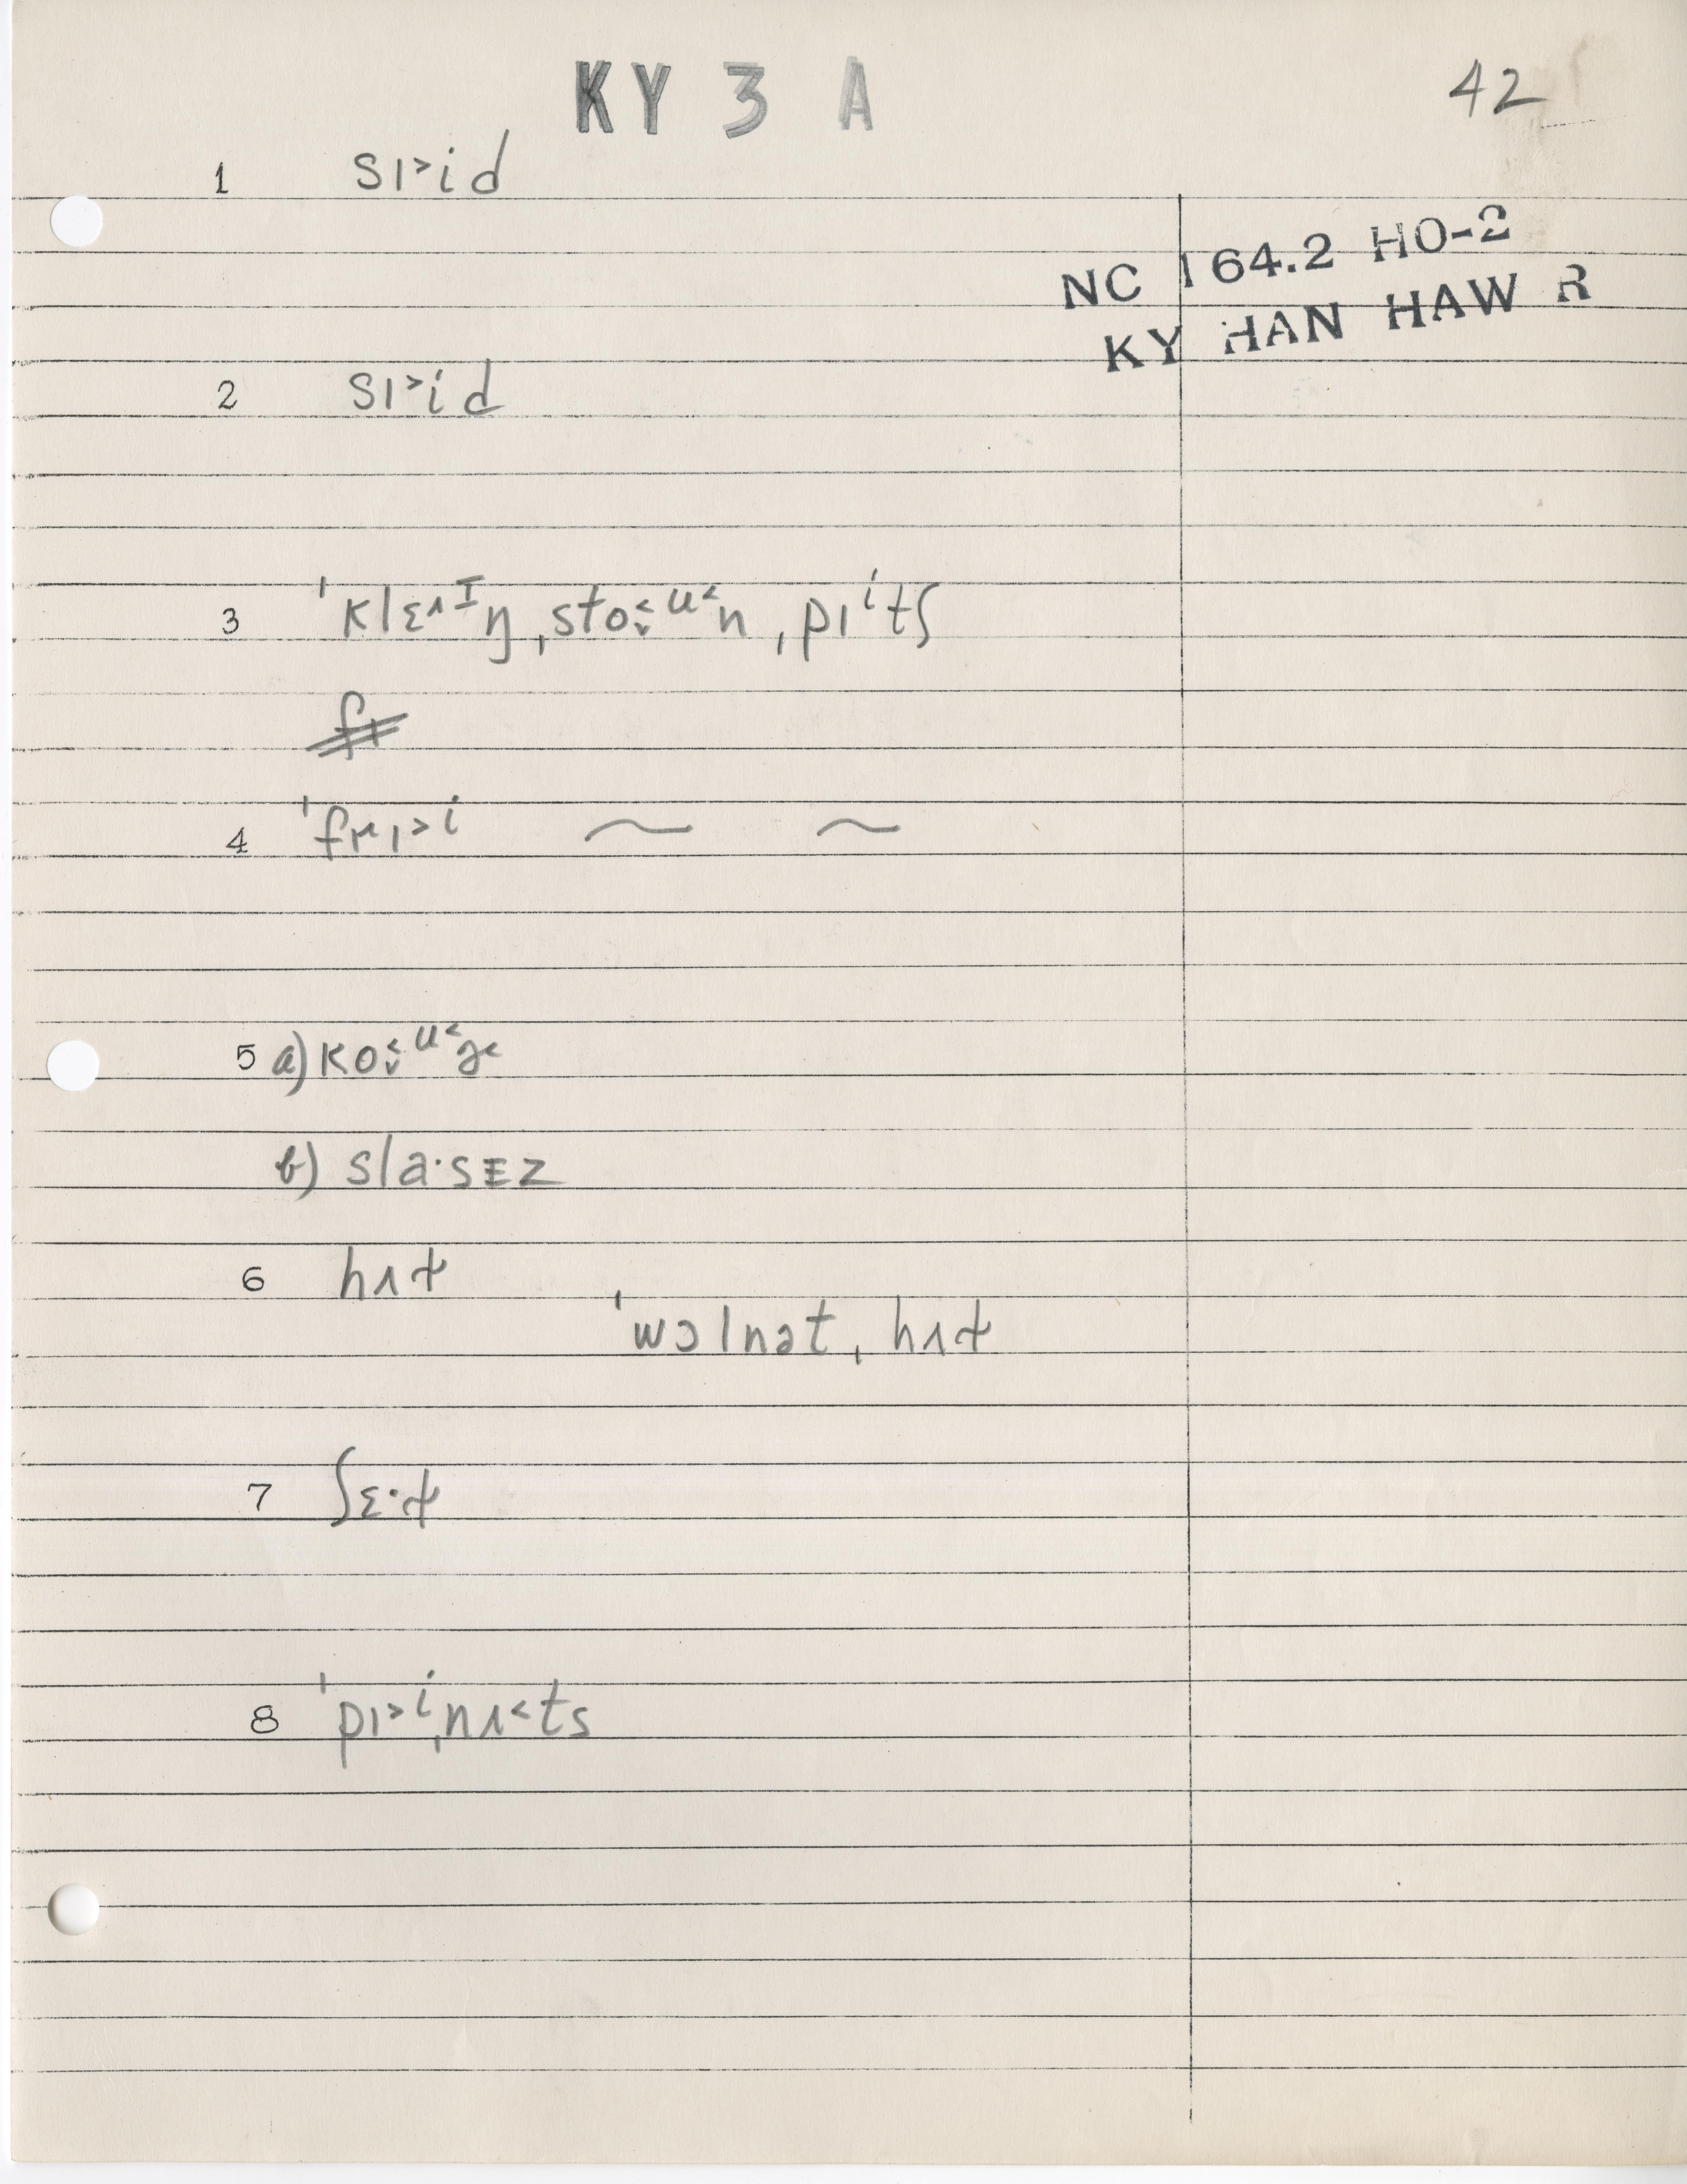 KY 3 A
42
1 sɪ˃id
NC 164.2 HO-2
KY HAN HAW R
2 sɪ˃id
3 ˈklɛʌᶦŋˌsto˂˅ᵘ˂nˌpɪⁱtʃ
4 ˈfrɪ˃ⁱ ~ ~
5 a) ko˂˅ᵘ˂
b) sla·sɛz
6 hʌɫ
ˈwɔlnətˌhʌɫ
7 ʃɛ·ɫ
8 ˈpɪ˃ⁱˌnʌ˂ts